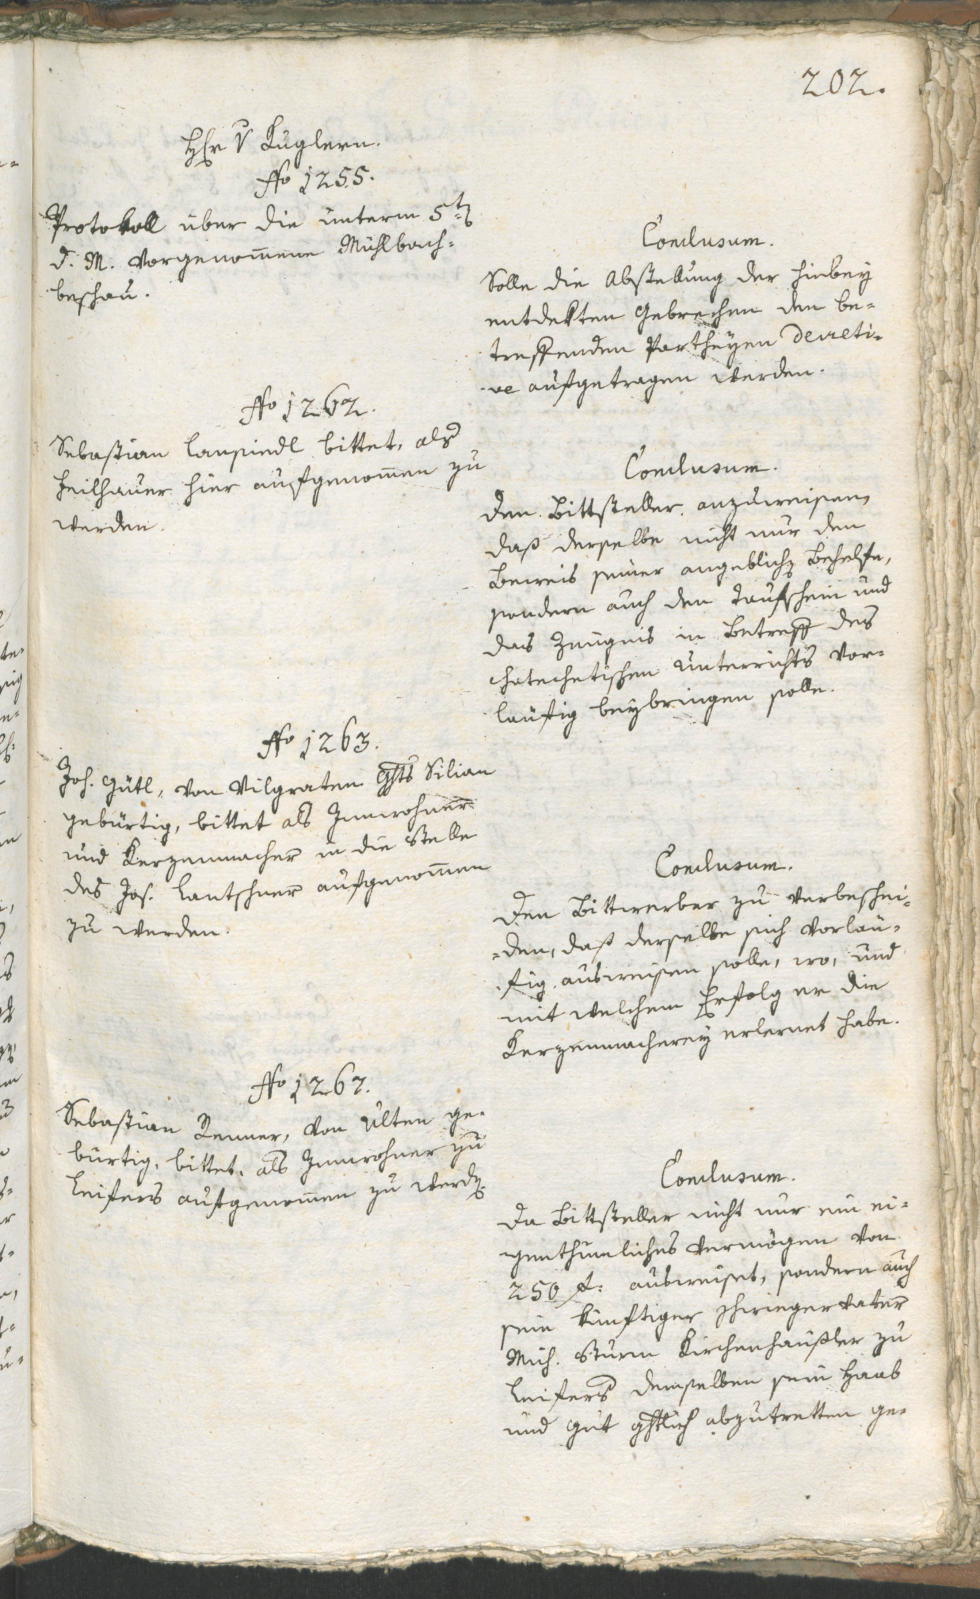 202.
Hr v Kuglern.
No 1255.
Protokoll über die unterm 5t
d. M. vorgenom̄ene Mühlbach-
beschau.
Conclusum.
Solle die Abstellung der hiebey
entdekten Gebrechen den be-
treffenden Partheyen decreti-
ve aufgetragen werden.
No 1262.
Sebastian bittet, als
Feilhauer hier aufgenom̄en zu
werden.
Conclusum.
Den Bittsteller anzuweisen,
daß derselbe nicht nur den
Beweis seiner angeblich Behelfe,
sondern auch den Taufschein und
das Zeugnis in Betreff des
chatechetischen Unterrichts vor-
läufig beybringen solle.
No 1263.
Joh. Gütl, von Vilgraten Ghts Silian
gebürtig, bittet als Innwohner
und Kerzenmacher in die Stelle
des Jos. Lantschner aufgenom̄en
zu werden.
Conclusum.
Den Bittwerber zu verbeschei-
-den, daß derselbe sich vorläu-
fig ausweisen solle, wo, und
mit welchem Erfolg er die
Kerzenmacherey erlernet habe.
No 1267.
Sebastian Renner, von Ulten ge-
bürtig, bittet, als Innwohner zu
Leifers aufgenom̄en zu werd.
Conclusum.
Da Bittsteller nicht nur ein ei-
genthumliches Vermögen von
250 f: ausweiset, sondern auch
sein künftiger Schwiegervater
Mich. Sturm Kirchenhäußler zu
Leifers demselben sein Haab
und Gut ghtlich abzutretten ge-